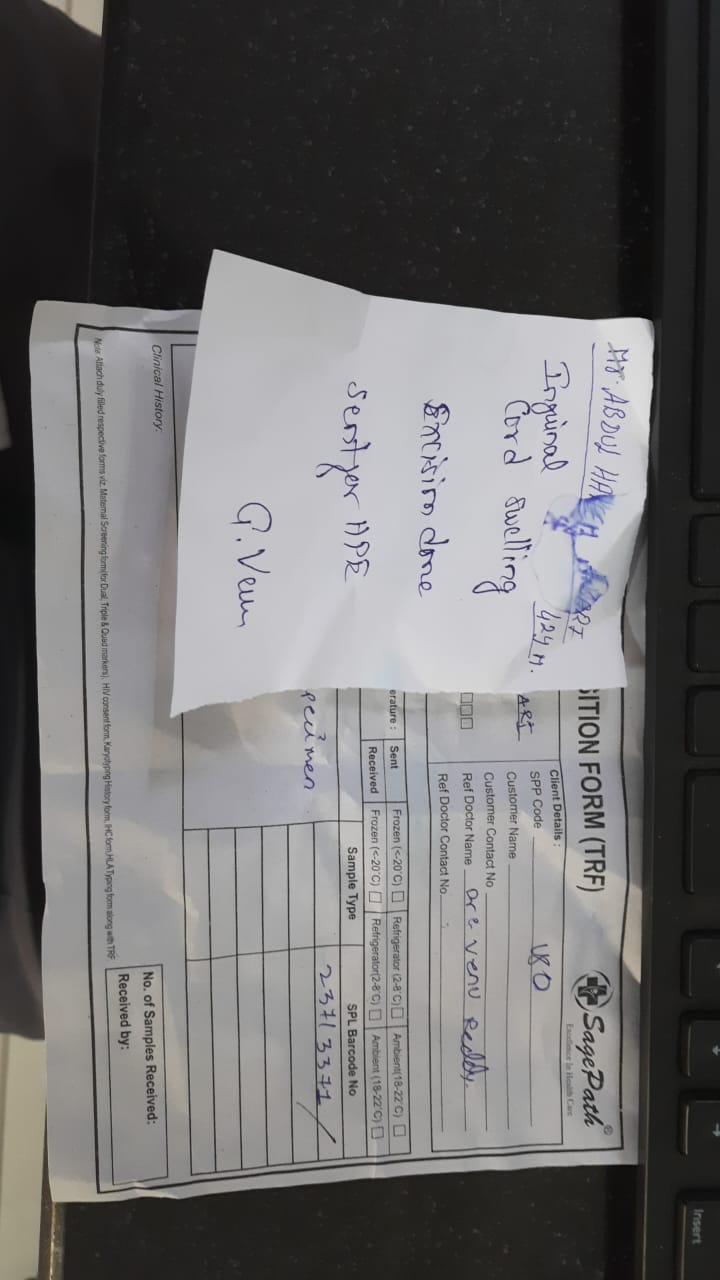 Mr. ABDUL
Inguinal 42y M.
Cord swelling
Excision done
Sent for HPE
G. Venu
SITION FORM (TRF)
SagePath®
Excellence In Health Care
ARI
Client Details :
SPP Code V80
Customer Name
Customer Contact No
Ref Doctor Name Dr. Venu Reddy.
Ref Doctor Contact No
erature : Sent Frozen (<-20°C) Refrigerator (2-8°C) Ambient (18-22°C)
Received Frozen (<-20°C) Refrigerator(2-8°C) Ambient (18-22°C)
Sample Type SPL Barcode No
pecimen 23713371
Clinical History:
No. of Samples Received:
Received by:
Note: Attach duly filled respective forms viz. Maternal Screening form(for Dual, Triple & Quad markers), HIV consent form, Karyotyping History form, IHC form,HLA Typing form along with TRF
Insert